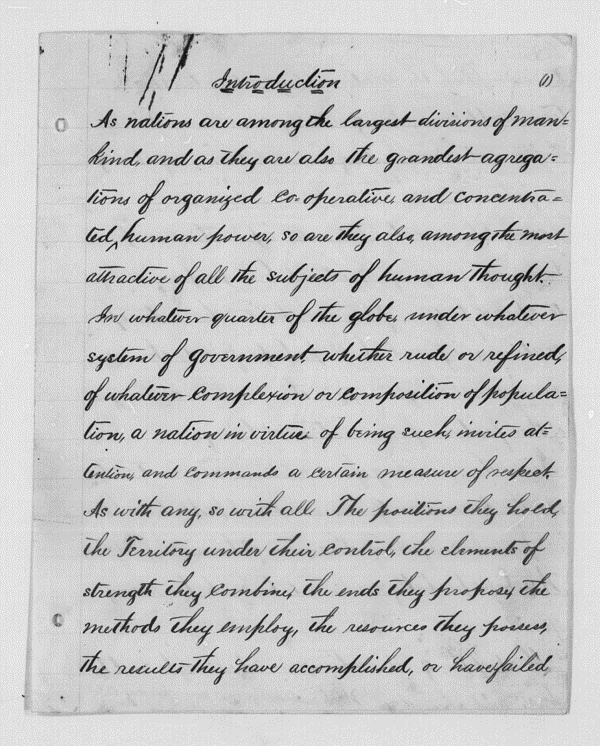 Introduction (1)
As nations are among the largest divisions of man=
kind, and as they are also the grandest agrega=
tions of organized co-operative, and concentra=
ted, human power, so are they also, among the most
attractive of all the subjects of human thought.
In whatever quarter of the globe, under whatever
system of government whether rude or refined,
of whatever complexion or composition of popula=
tion, a nation in virtue of being such, invites at=
tention, and commands a certain measure of respect.
As with any, so with all. The positions they hold,
the Territory under their control, the elments of
strength they combine, the ends they propose, the
methods they employ, the resources they possess,
the results they have accomplished, or have failed,